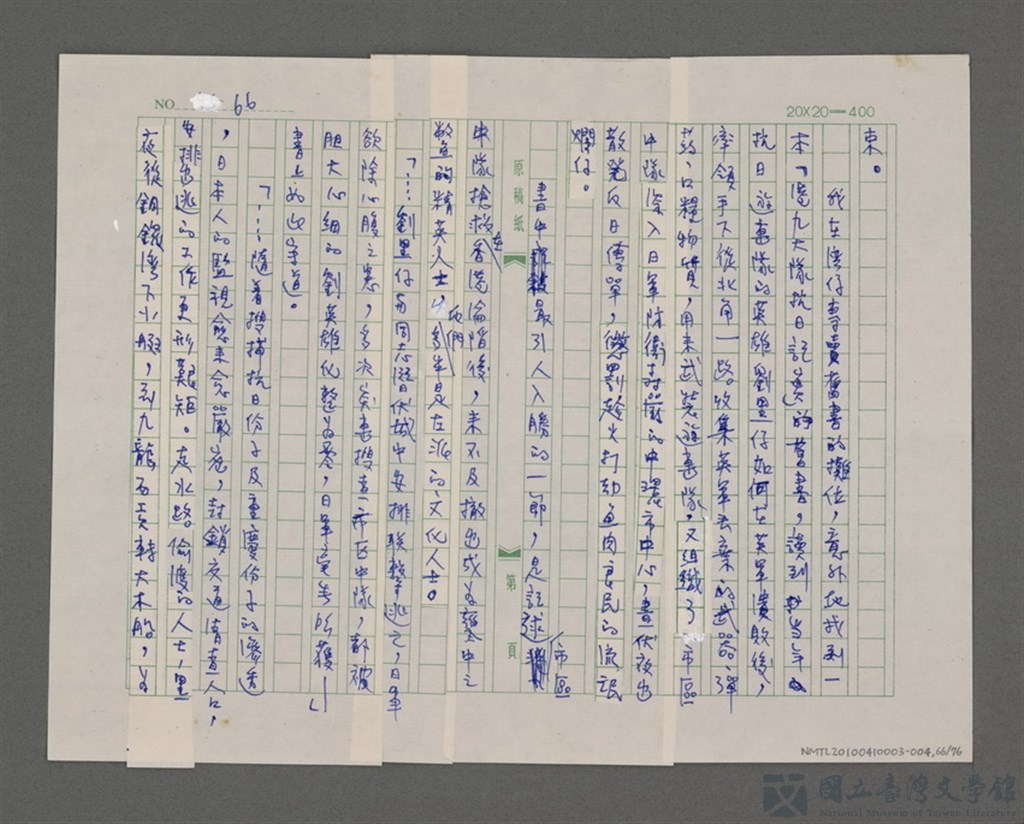 NO. 66
20X20=400
束。
我在灣仔專賣舊書的攤位,意外地找到一
本「港九大隊抗日記實」的舊書,讀到當年
抗日遊擊隊的英雄劉黑仔如何在英軍潰敗後,
率領手下從北角一路收集英軍丟棄的武器、彈
葯、口糧物質,用來武裝遊擊隊,又組織了市區
中隊深入日軍防衛森嚴的中環市中心,晝伏夜出
散發反日傳單,懲罰趁火打劫魚肉良民的流氓
爛仔。
原稿紙
第 頁
書中最引人入勝的一節,是記述市區
中隊搶救在香港淪陷後,來不及撤出成為甕中之
鱉的精英人士,他們多半是左派的文化人士。
「…劉黑仔與同志潛伏城中安排聯絡,日軍
欲除心腹之患,多次突擊搜查市區中隊,都被
胆大心細的劉英雄化整為零,日軍毫無所獲—」
書上如此寫道。
「…隨著搜捕抗日份子及重慶份子的滲透
,日本人的監視愈來愈嚴密,封鎖交通清查人口,
安排出逃的工作更形艱鉅。走水路偷渡的人士,黑
夜從銅鑼灣下小艇,到九龍再轉大木船,
NMTL20100410003-004,66/76
國立臺灣文學館
National Museum of Taiwan Literature